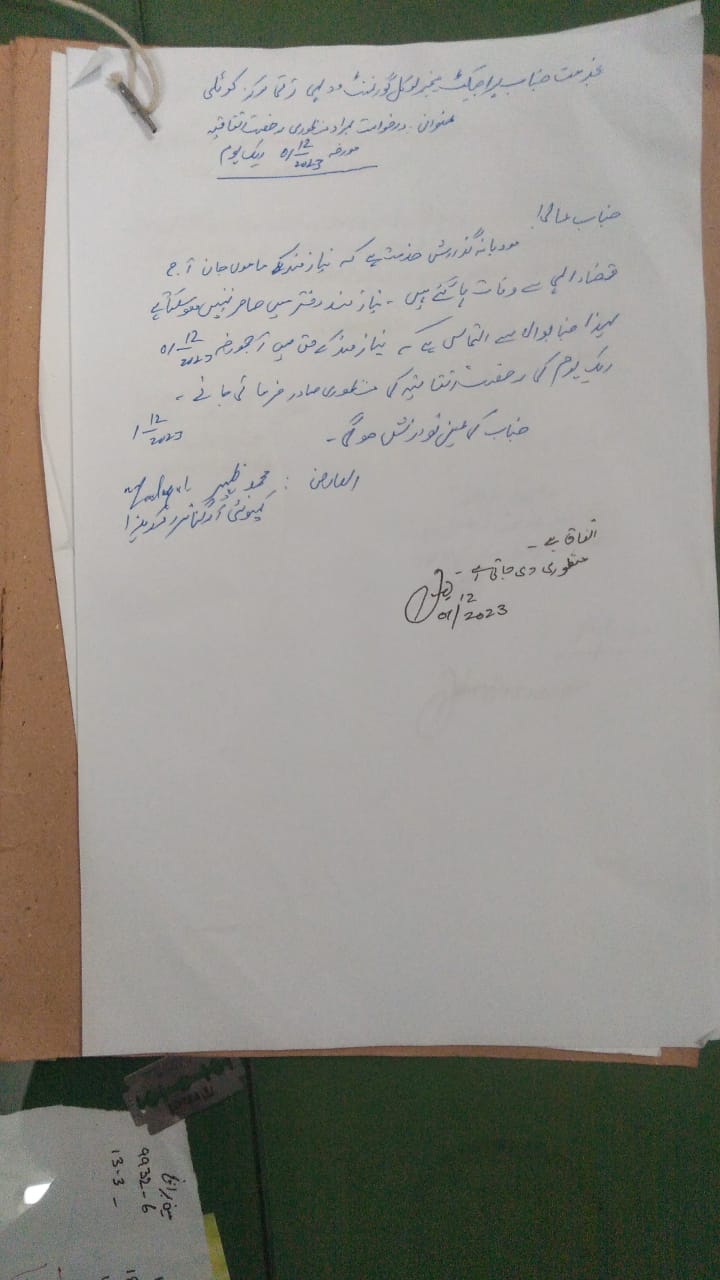 بخدمت جناب پراجیکٹ منیجر لوکل گورنمنٹ و دیہی ترقی مرکز کوٹلی
عنوان: درخواست بمراد منظوری رخصت اتفاقیہ
مورخہ 01/12/2023 ایک یوم
جناب عالی!
مودبانہ گذارش خدمت ہے کہ نیازمند کے ماموں جان آج
قضاء الہی سے وفات پا گئے ہیں ۔ نیازمند دفتر میں حاضر نہیں ہو سکتا ہے
لہذا جناب والا سے التماس ہے کہ نیازمند کے حق میں آجمورخہ 01/12/2023
ایک یوم کی رخصت اتفاقیہ کی منظوری صادر فرمائی جائے ۔
جناب کی عین نوازش ہو گی ۔
1/12/2023
العارض : محمد ظہیر
کمیونٹی آرگنائزر
اتفاق ہے ۔
منظوری دی جاتی ہے ۔
01/12/2023
9932-6
13.3 -